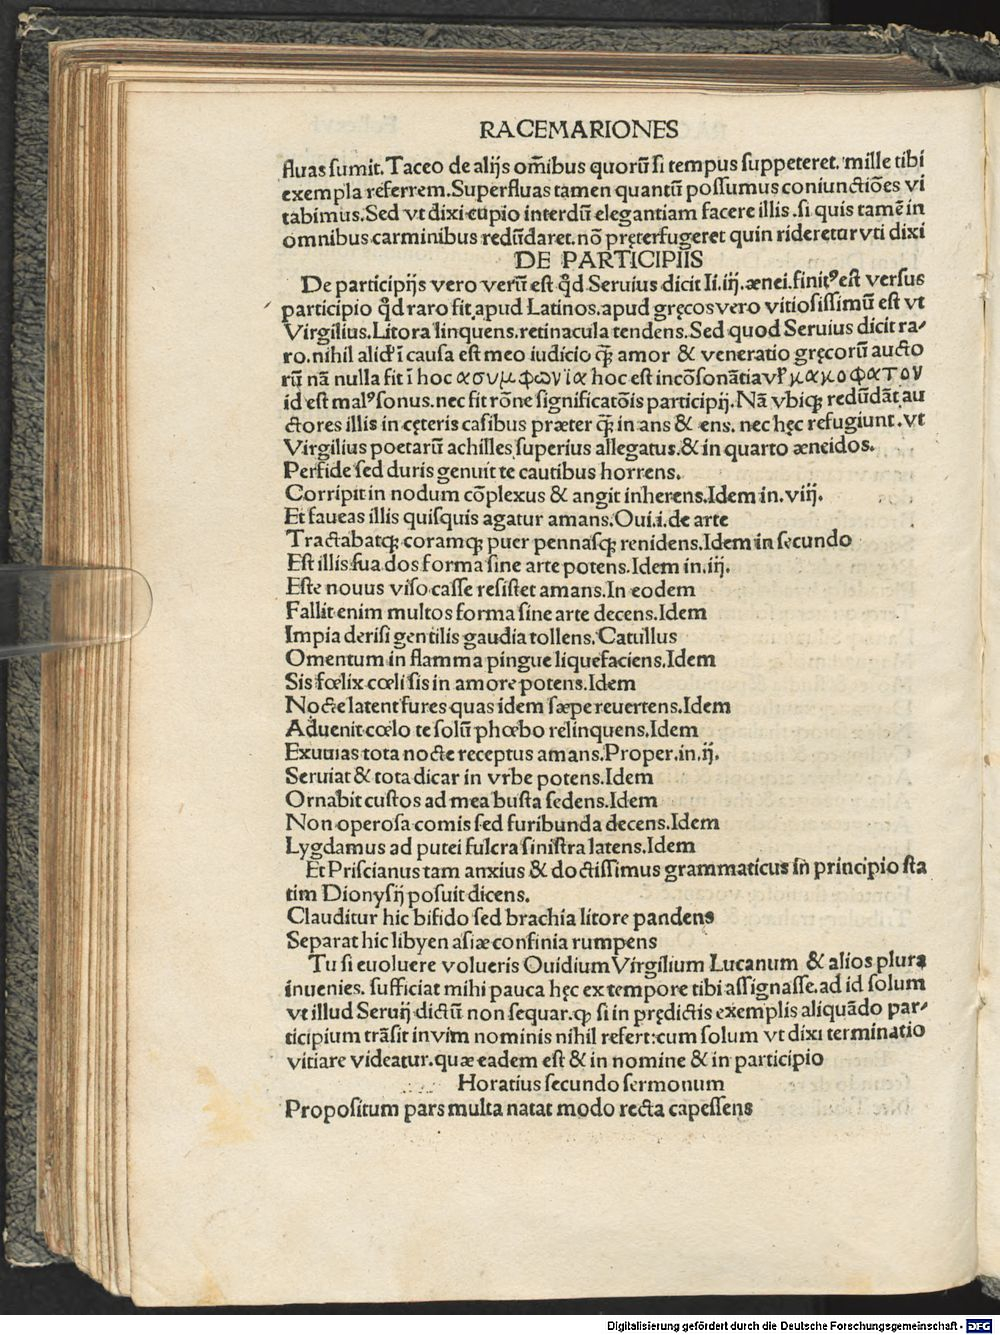 RACEMARIONES
fluas sumit. Taceo de alijs om̄ibus quorū si tempus suppeteret. mille tibi
exempla referrem. Superfluas tamen quantū possumus coniunctiōes vi
tabimus. Sed vt dixi cupio interdū elegantiam facere illis. si quis tamē in
omnibus carminibus redūdaret. nō pręterfugeret quin rideretur vti dixi
DE PARTICIPIIS
De participijs vero verū est qd̄ Seruius dicit Ii. iij. ænei. finitꝰ est versus
participio qd̄ raro fit apud Latinos. apud gręcos vero vitiosissimū est vt
Virgilius. Litora linquens. retinacula tendens. Sed quod Seruius dicit ra-
ro. nihil alid' ī causa est meo iudicio q̄ꝫ amor & veneratio gręcorū aucto
rū nā nulla fit ī hoc ασυμφωνία hoc est incōsonātia vl' κακοφατον
id est malꝰ sonus. nec fit rōne significatōis participij. Nā vbiqꝫ redūdāt au
ctores illis in cęteris casibus præter q̄ꝫ in ans & ens. nec hęc refugiunt. vt
Virgilius poetarū achilles superius allegatus. & in quarto æneidos.
Perfide sed duris genuit te cautibus horrens.
Corripit in nodum cōplexus & angit inherens. Idem in. viij.
Et faueas illis quisquis agatur amans. Oui. i. de arte
Tractabatqꝫ coramqꝫ puer pennasqꝫ renidens. Idem in secundo
Est illis sua dos forma sine arte potens. Idem in. iij.
Este nouus viso casse resistet amans. In eodem
Fallit enim multos forma sine arte decens. Idem
Impia derisi gentilis gaudia tollens. Catullus
Omentum in flamma pingue liquefaciens. Idem
Sis fœlix cœli sis in amore potens. Idem
Nocte latent fures quas idem sæpe reuertens. Idem
Aduenit cœlo te solū phœbo relinquens. Idem
Exuuias tota nocte receptus amans. Proper. in. ij.
Seruiat & tota dicar in vrbe potens. Idem
Ornabit custos ad mea busta sedens. Idem
Non operosa comis sed furibunda decens. Idem
Lygdamus ad putei fulcra sinistra latens. Idem
Et Priscianus tam anxius & doctissimus grammaticus in principio sta
tim Dionysij posuit dicens.
Clauditur hic bifido sed brachia litore pandens
Separat hic libyen asiæ confinia rumpens
Tu si euoluere volueris Ouidium Virgilium Lucanum & alios plura
inuenies. sufficiat mihi pauca hęc ex tempore tibi assignasse. ad id solum
vt illud Seruij dictū non sequar. ꝙ si in prędictis exemplis aliquādo par-
ticipium trāsit in vim nominis nihil refert: cum solum vt dixi terminatio
vitiare videatur. quæ eadem est & in nomine & in participio
Horatius secundo sermonum
Propositum pars multa natat modo recta capessens
Digitalisierung gefördert durch die Deutsche Forschungsgemeinschaft - DFG